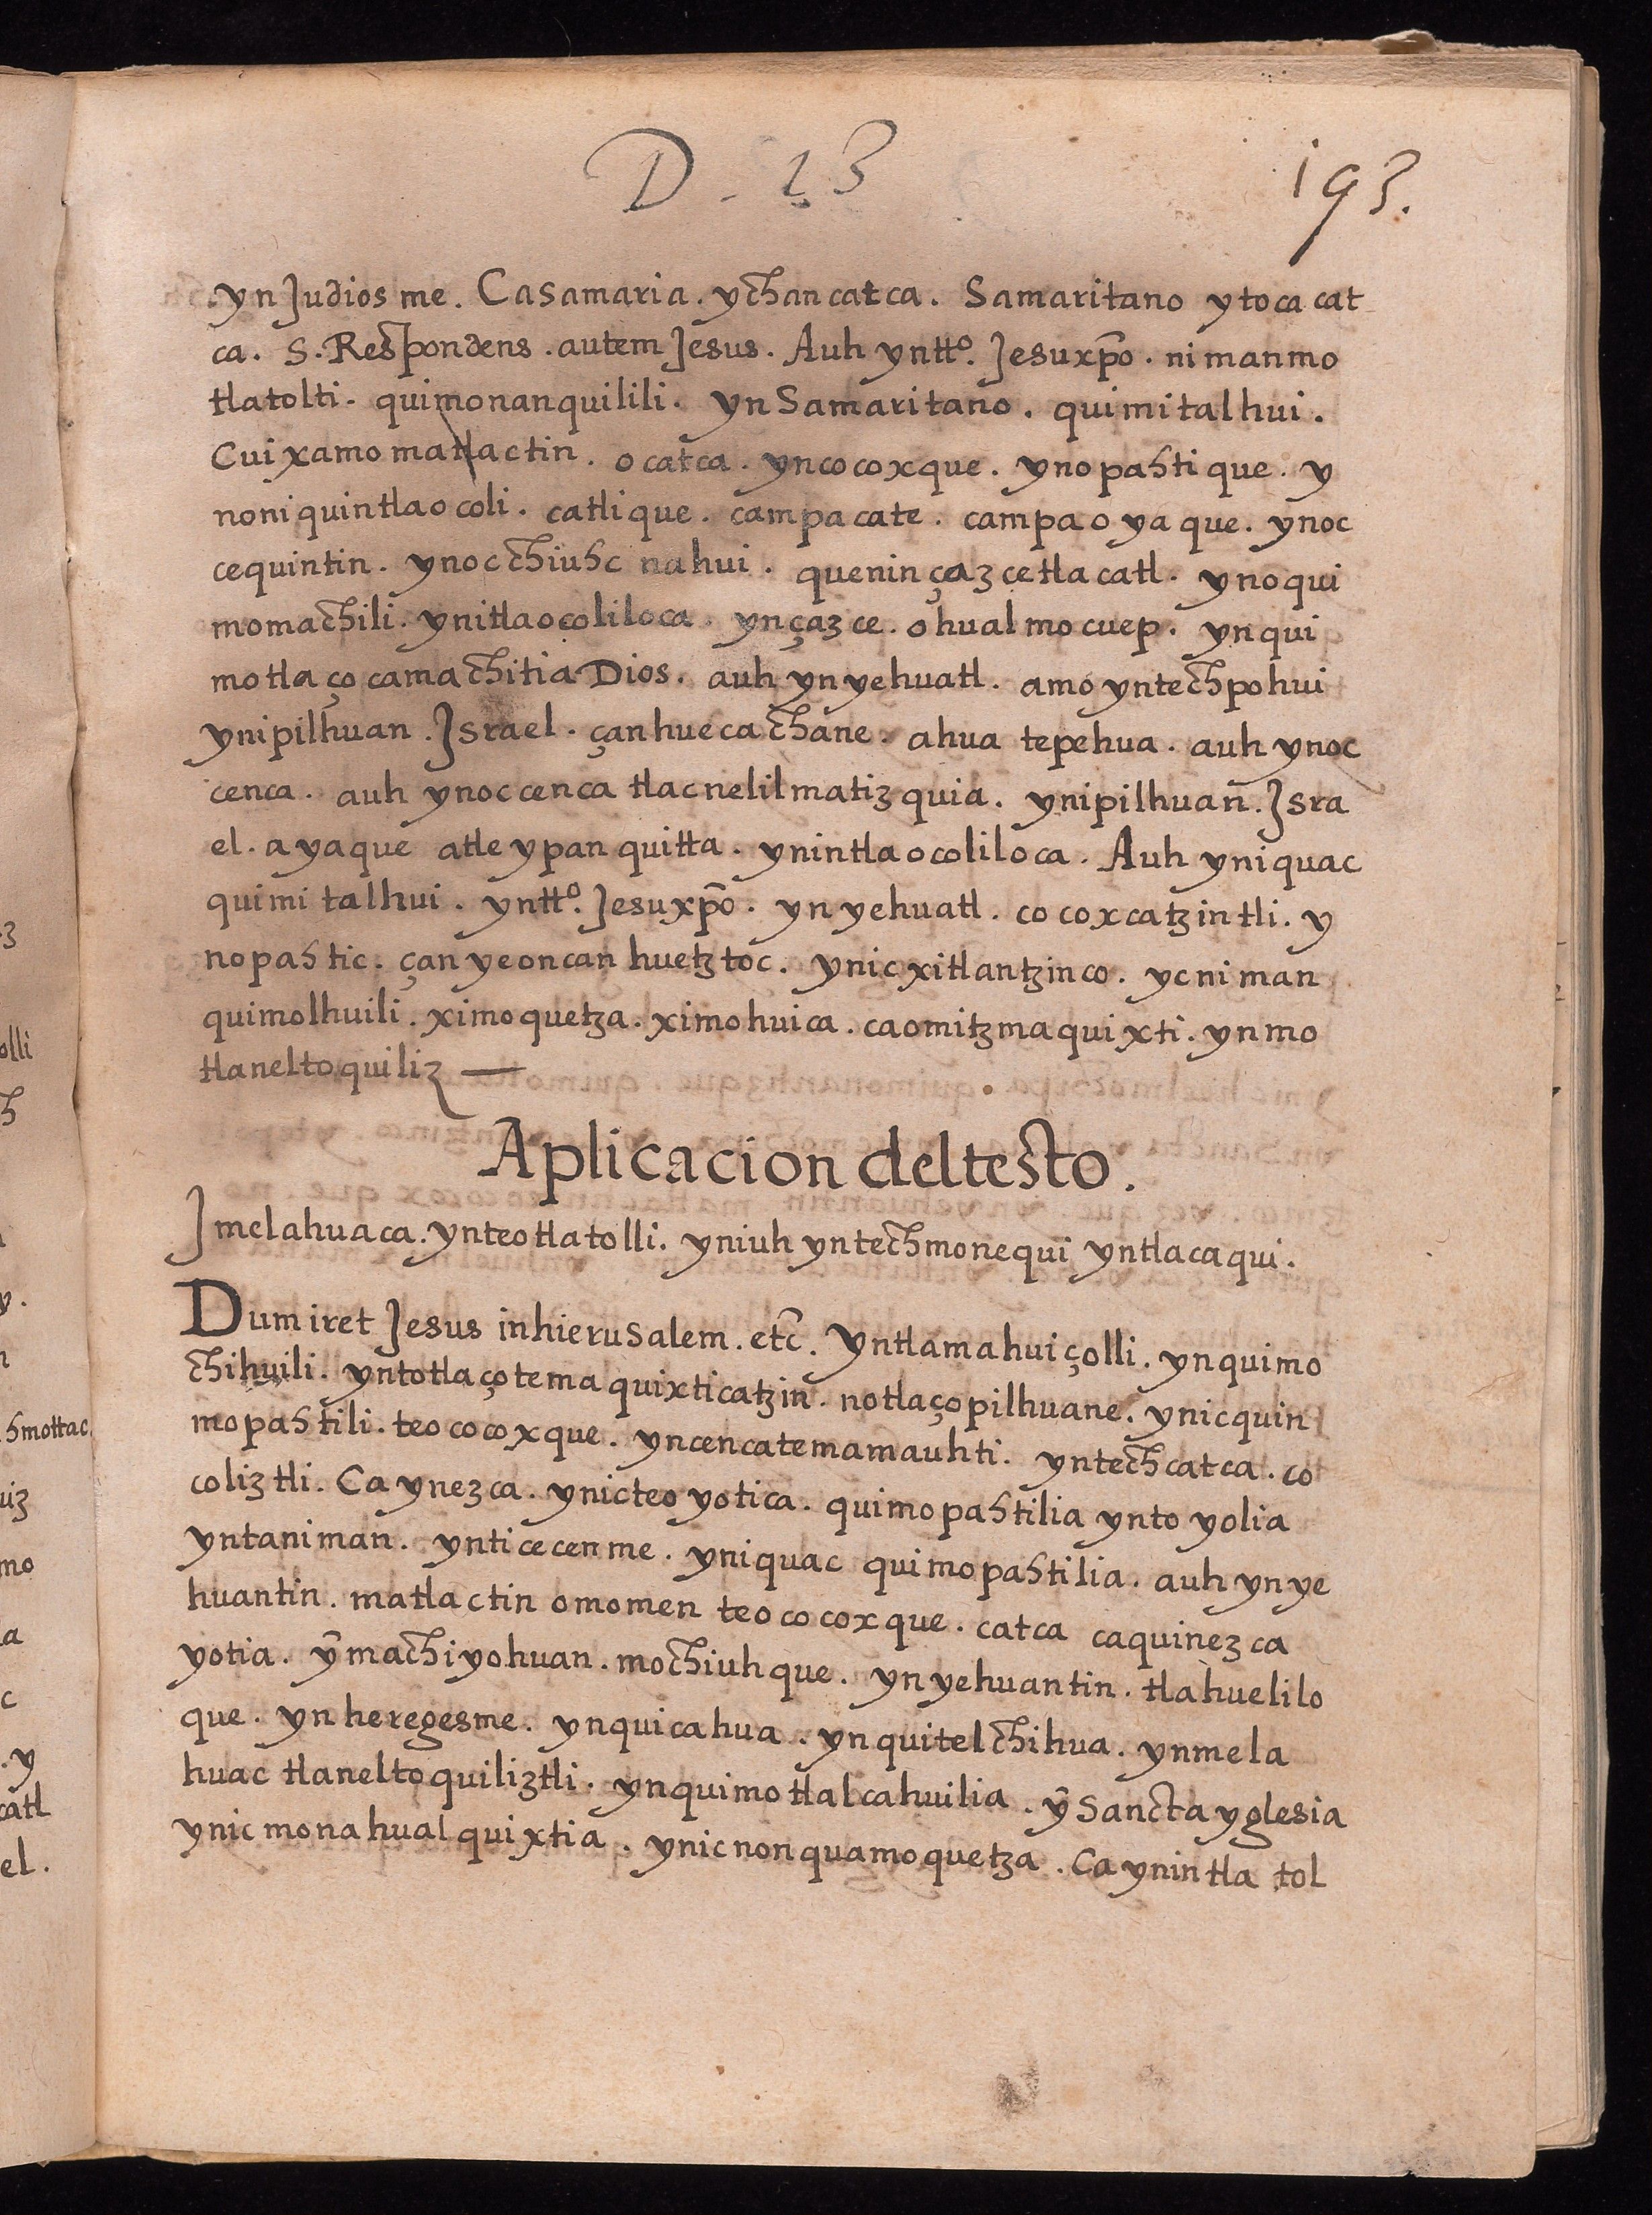 D. 13
193.
yn Judiosme. Ca samaria. ychan catca. Samaritano ytoca cat
ca. S. Respondens. autem Jesus. Auh yn tto. Jesuxpo. niman mo
tlatolti. quimonanquilili. yn Samaritano. quimitalhui.
Cuix amo matlactin. ocatca. yn cocoxque. yn opahtique. y
n oniquintlaocoli. catlique. campa cate. campa oyaque. yn oc
cequintin. yn oc chiuhc nahui. quenin çaz ce tlacatl. yn oqui
momachili. yn itlaocoliloca. yn çaz ce. ohualmocuep. yn qui
motlaçocamachitia Dios. auh yn yehuatl. amo yntech pohui
yn ipilhuan. Israel. çan hueca chane. ahua tepehua. auh yn oc
cenca. auh yn oc cenca tlacnelilmatizquia. yn ipilhuan. Isra
el. ayaque atle ypan quitta. yn intlaocoliloca. Auh yn iquac
quimitalhui. yn tto. Jesuxpo. yn yehuatl. cocoxcatzintli. y
n opahtic. çan ye oncan huetztoc. yn icxitlantzinco. yc niman
quimolhuili. ximoquetza. ximohuica. ca omitzmaquixti. yn mo
tlaneltoquiliz —
Aplicacion del testo.
Jmelahuaca. yn teotlatolli. yn iuh yntech monequi yn tlacaqui.
Dum iret Jesus in hierusalem. etc. Yn tlamahuiçolli. yn quimo
chihuili. yn totlaçotemaquixticatzin. notlaçopilhuane. ynic quin
mopahtili. teococoxque. yn cenca temamauhti. yntech catca. co
coliztli. Ca ynezca. ynic teoyotica. quimopahtilia yn toyolia
yn taniman. yn ticecenme. yn iquac quimopahtilia. auh yn ye
huantin. matlactin omomen teococoxque. catca ca quinezca
yotia. ȳ machiyohuan. mochiuhque. yn yehuantin. tlahuelilo
que. yn heregesme. yn quicahua. yn quitelchihua. yn mela
huac tlaneltoquiliztli. yn quimotlalcahuilia. ȳ Sancta yglesia
ynic monahualquixtia. ynic nonqua moquetza. Ca yn intlatol